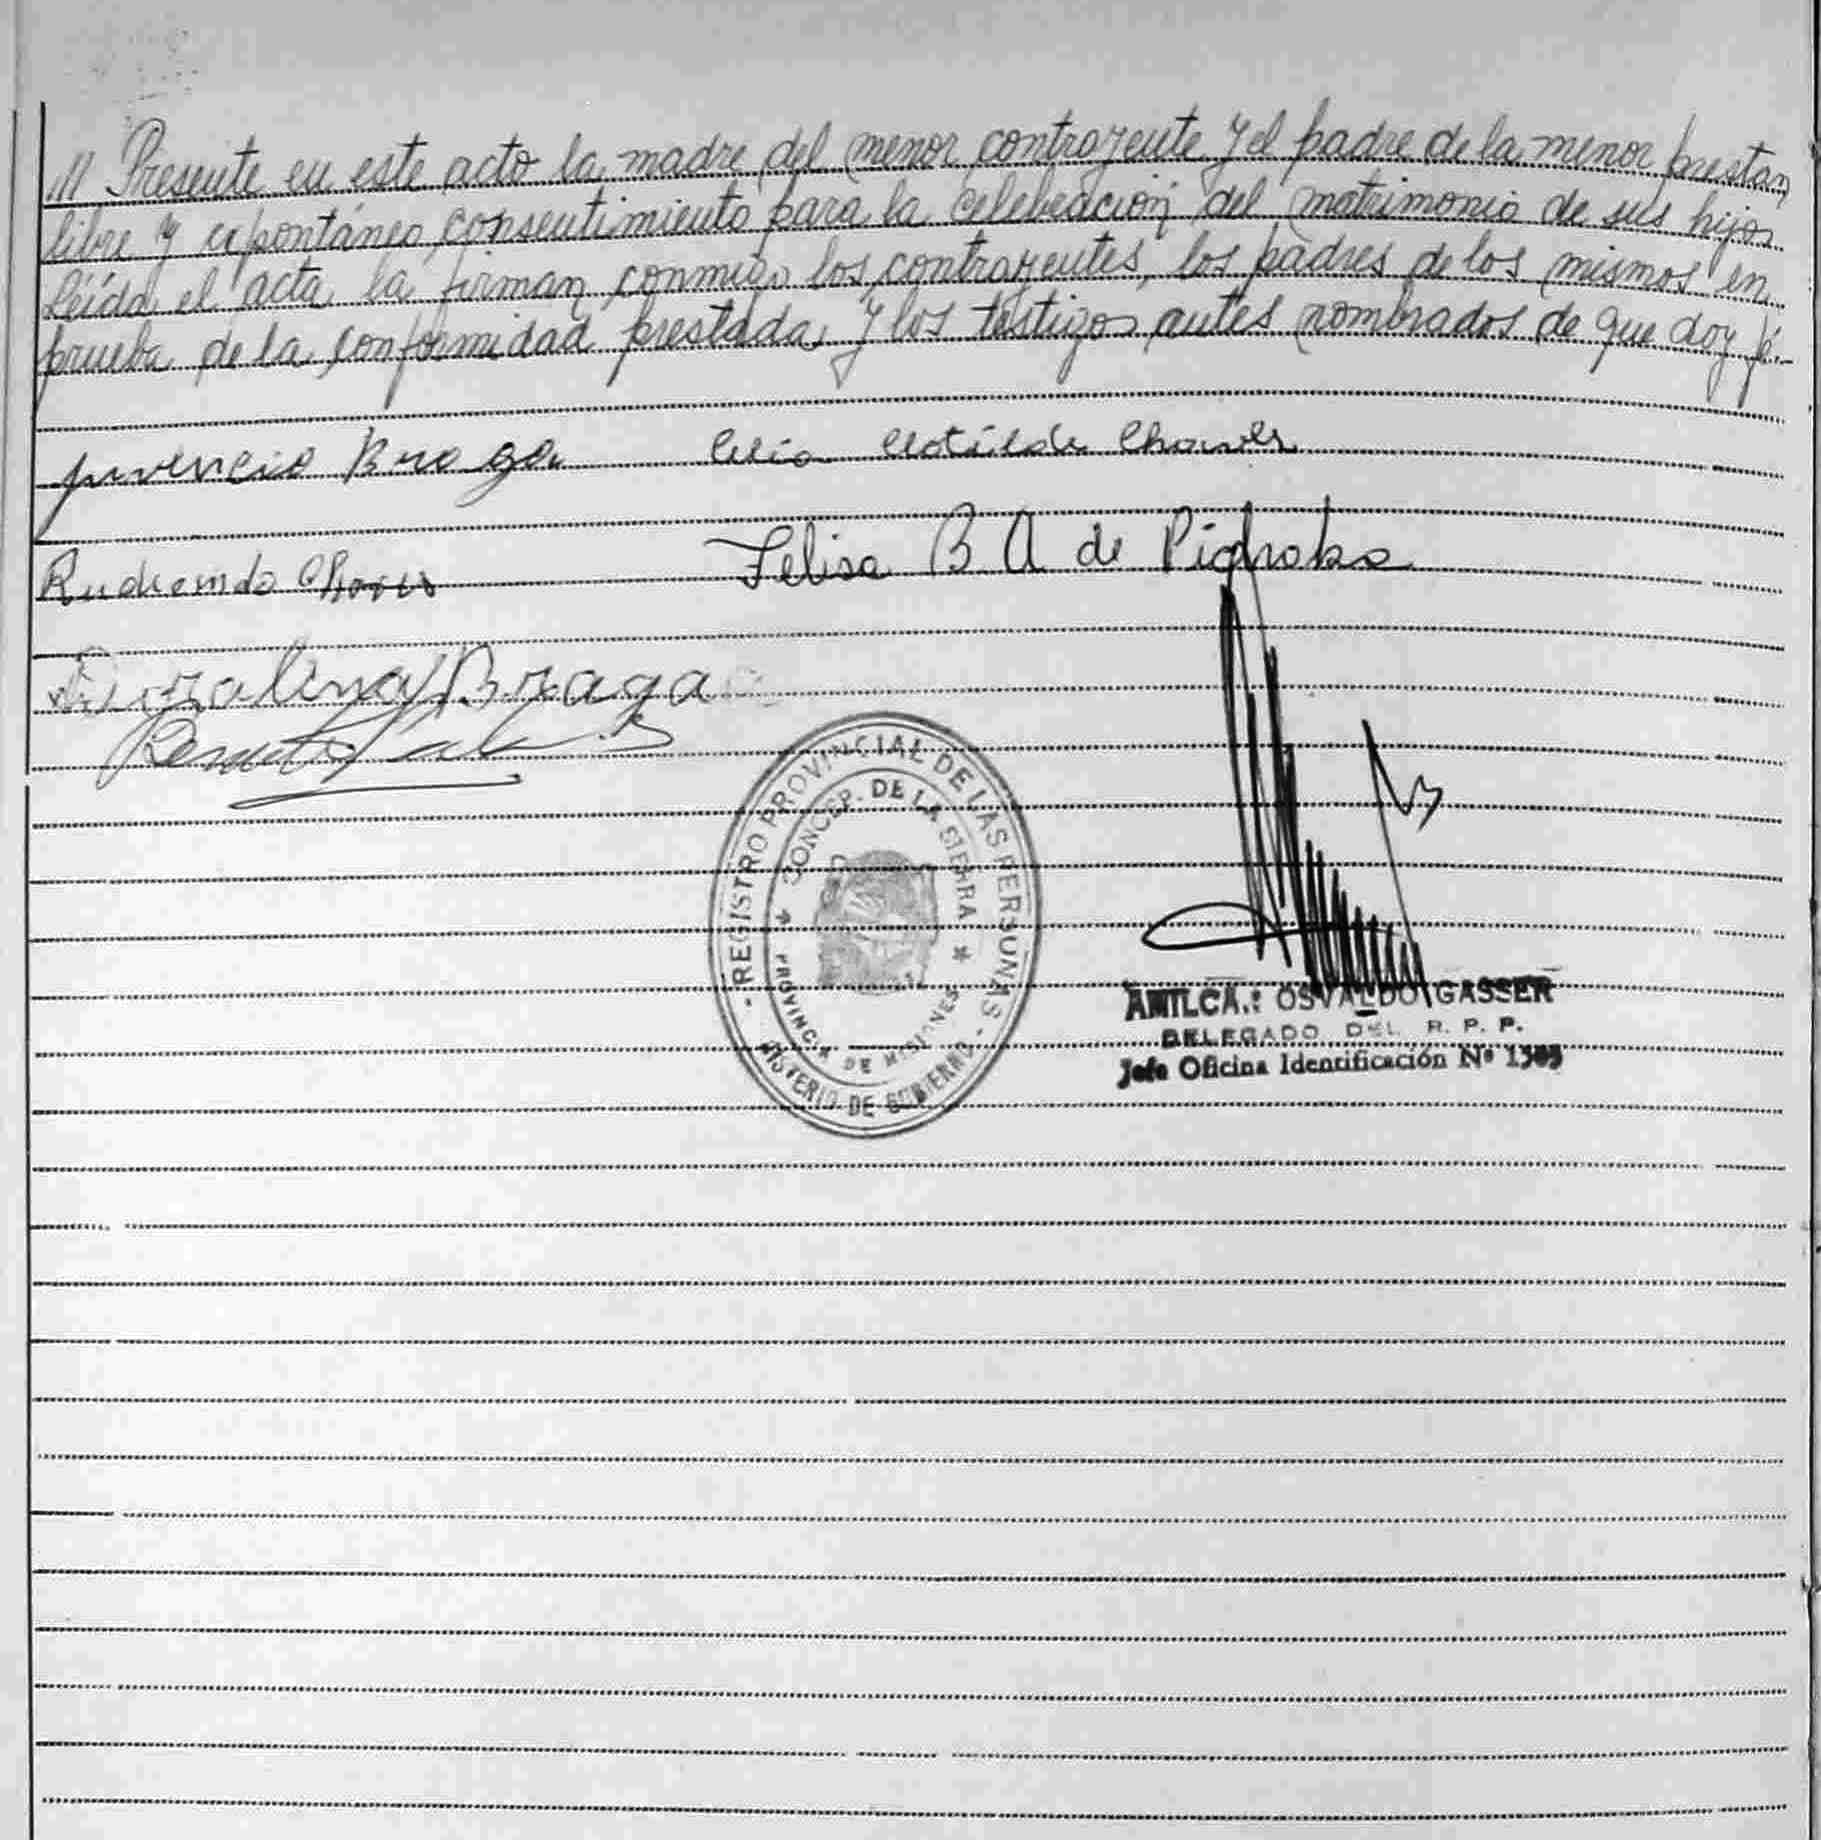 /// Presente en este acto la madre del menor contrayente y el padre de la menor prestan
libre y espontáneo consentimiento para la celebración del matrimonio de sus hijos
Leída el acta la firman conmigo los contrayentes, los padres de los mismos en
prueba de la conformidad prestada y los testigos antes nombrados de que doy fé.-
Juvencio Braga Celia Clotilde Chaves
Felisa B. A de
Rudicindo Chaves
Doralina Braga
REGISTRO PROVINCIAL DE LAS PERSONAS
CONCEP. DE LA SIERRA
PROVINCIA DE MISIONES
MISTERIO DE GOBIERNO
AMILCA.: OSVALDO GASSER
DELEGADO DEL R. P. P.
Jefe Oficina Identificación Nº